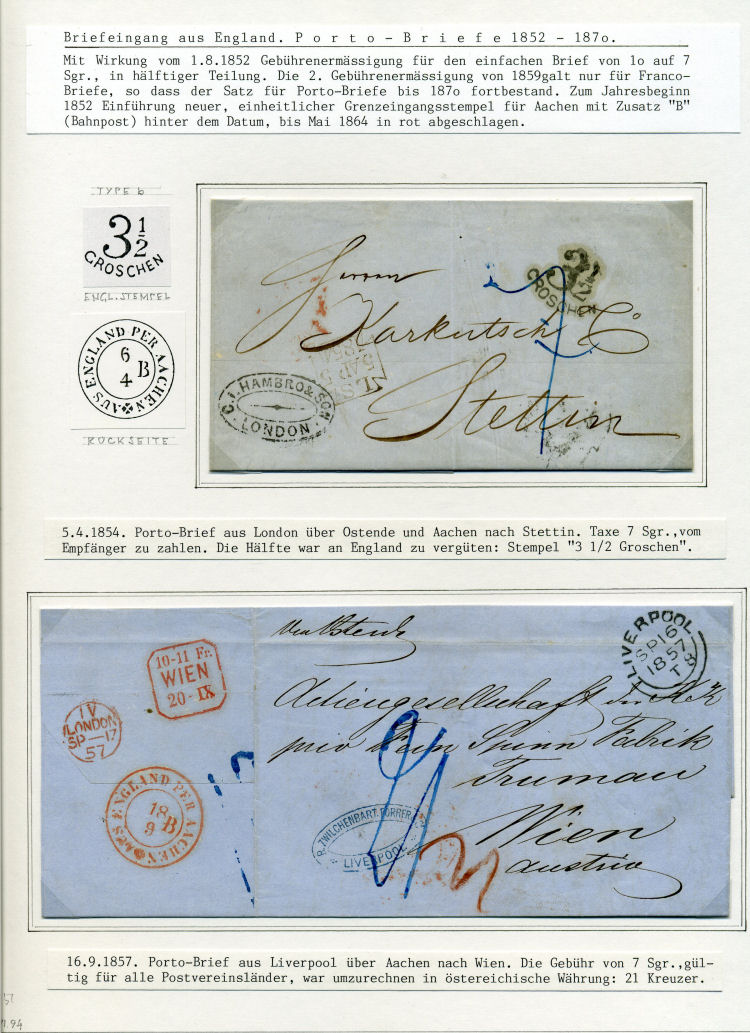 Briefeingang aus England. P o r t o - B r i e f e 1852 - 187o.
Mit Wirkung vom 1.8.1852 Gebührenermässigung für den einfachen Brief von 1o auf 7
Sgr., in hälftiger Teilung. Die 2. Gebührenermässigung von 1859galt nur für Franco-
Briefe, so dass der Satz für Porto-Briefe bis 187o fortbestand. Zum Jahresbeginn
1852 Einführung neuer, einheitlicher Grenzeingangsstempel für Aachen mit Zusatz "B"
(Bahnpost) hinter dem Datum, bis Mai 1864 in rot abgeschlagen.
TYPE b
3 1/2
GROSCHEN
ENGL. STEMPEL
AUS ENGLAND PER AACHEN
6
4
B
RÜCKSEITE
3 1/2
GROSCHEN
Herren
Karkutsch & Co
Stettin
C.J. HAMBRO & SON
LONDON
5.4.1854. Porto-Brief aus London über Ostende und Aachen nach Stettin. Taxe 7 Sgr.,vom
Empfänger zu zahlen. Die Hälfte war an England zu vergüten: Stempel "3 1/2 Groschen".
via Ostende
LIVERPOOL
SP 16
1857
T
10-11 Fr.
WIEN
20-IX
1V
LONDON
SP-17
57
AUS ENGLAND PER AACHEN
18
9
B
Actiengesellschaft der K.K.
priv Fein Spinn Fabrik
Trumau
Wien
austria
21
R. ZWILCHENBART. FORRER
LIVERPOOL
16.9.1857. Porto-Brief aus Liverpool über Aachen nach Wien. Die Gebühr von 7 Sgr.,gül-
tig für alle Postvereinsländer, war umzurechnen in östereichische Währung: 21 Kreuzer.